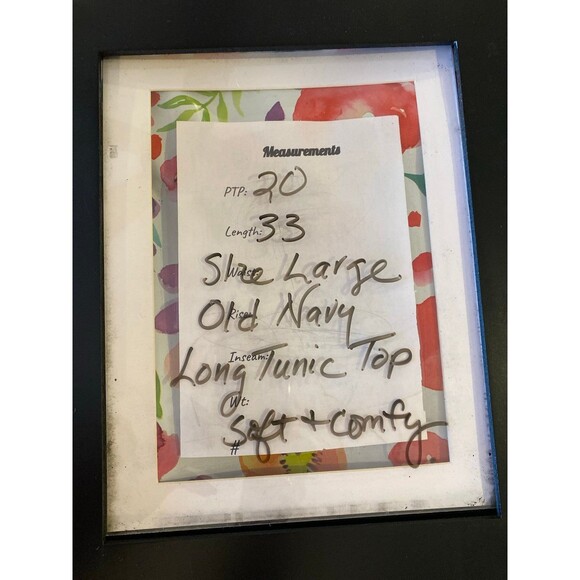 Measurements
PTP: 20
Length: 33
Waist:
Size Large
Rise:
Old Navy
Inseam:
Long Tunic Top
Wt:
Soft + Comfy
#